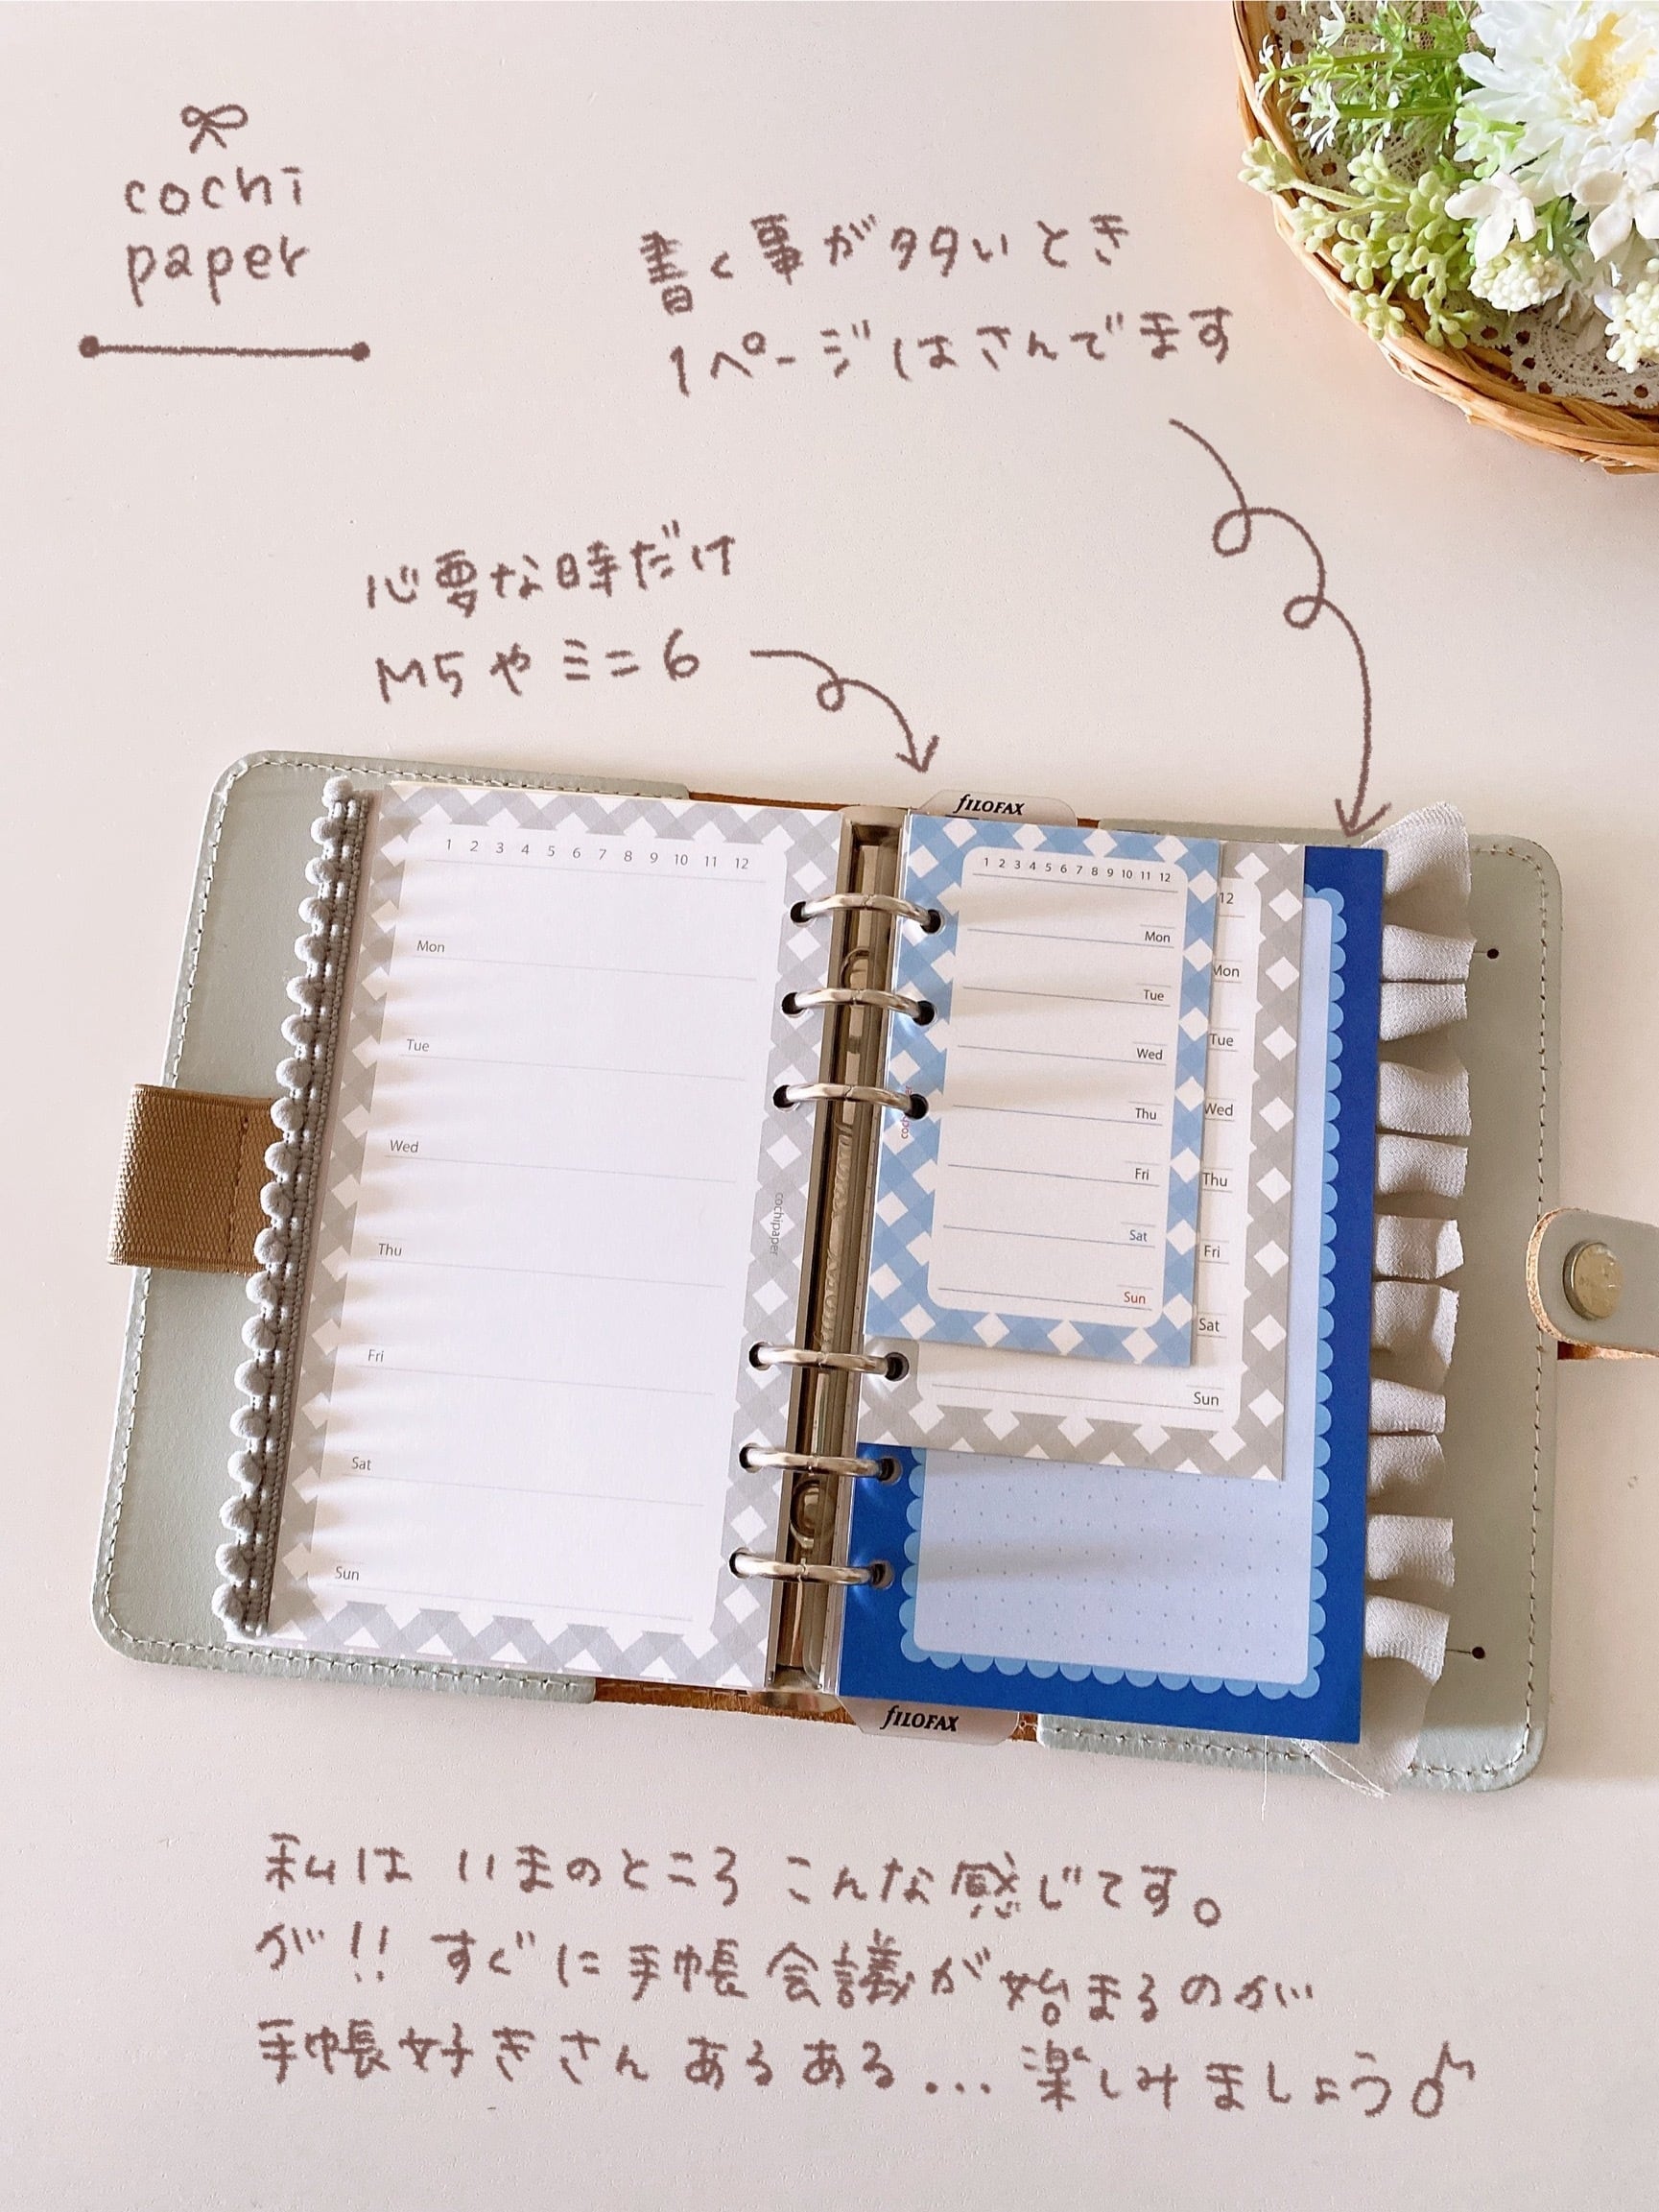 cochi
paper
書く事が多いとき
1ページはさんでます
必要な時だけ
M5やミニ6
filofax
1 2 3 4 5 6 7 8 9 10 11 12
Mon
Tue
Wed
Thu
Fri
Sat
Sun
cochipaper
1 2 3 4 5 6 7 8 9 10 11 12
Mon
Tue
Wed
Thu
Fri
Sat
Sun
12
Mon
Tue
Wed
Thu
Fri
Sat
Sun
filofax
私は いまのところ こんな感じです。
が!! すぐに手帳会議が始まるのが
手帳好きさん あるある... 楽しみましょう♪